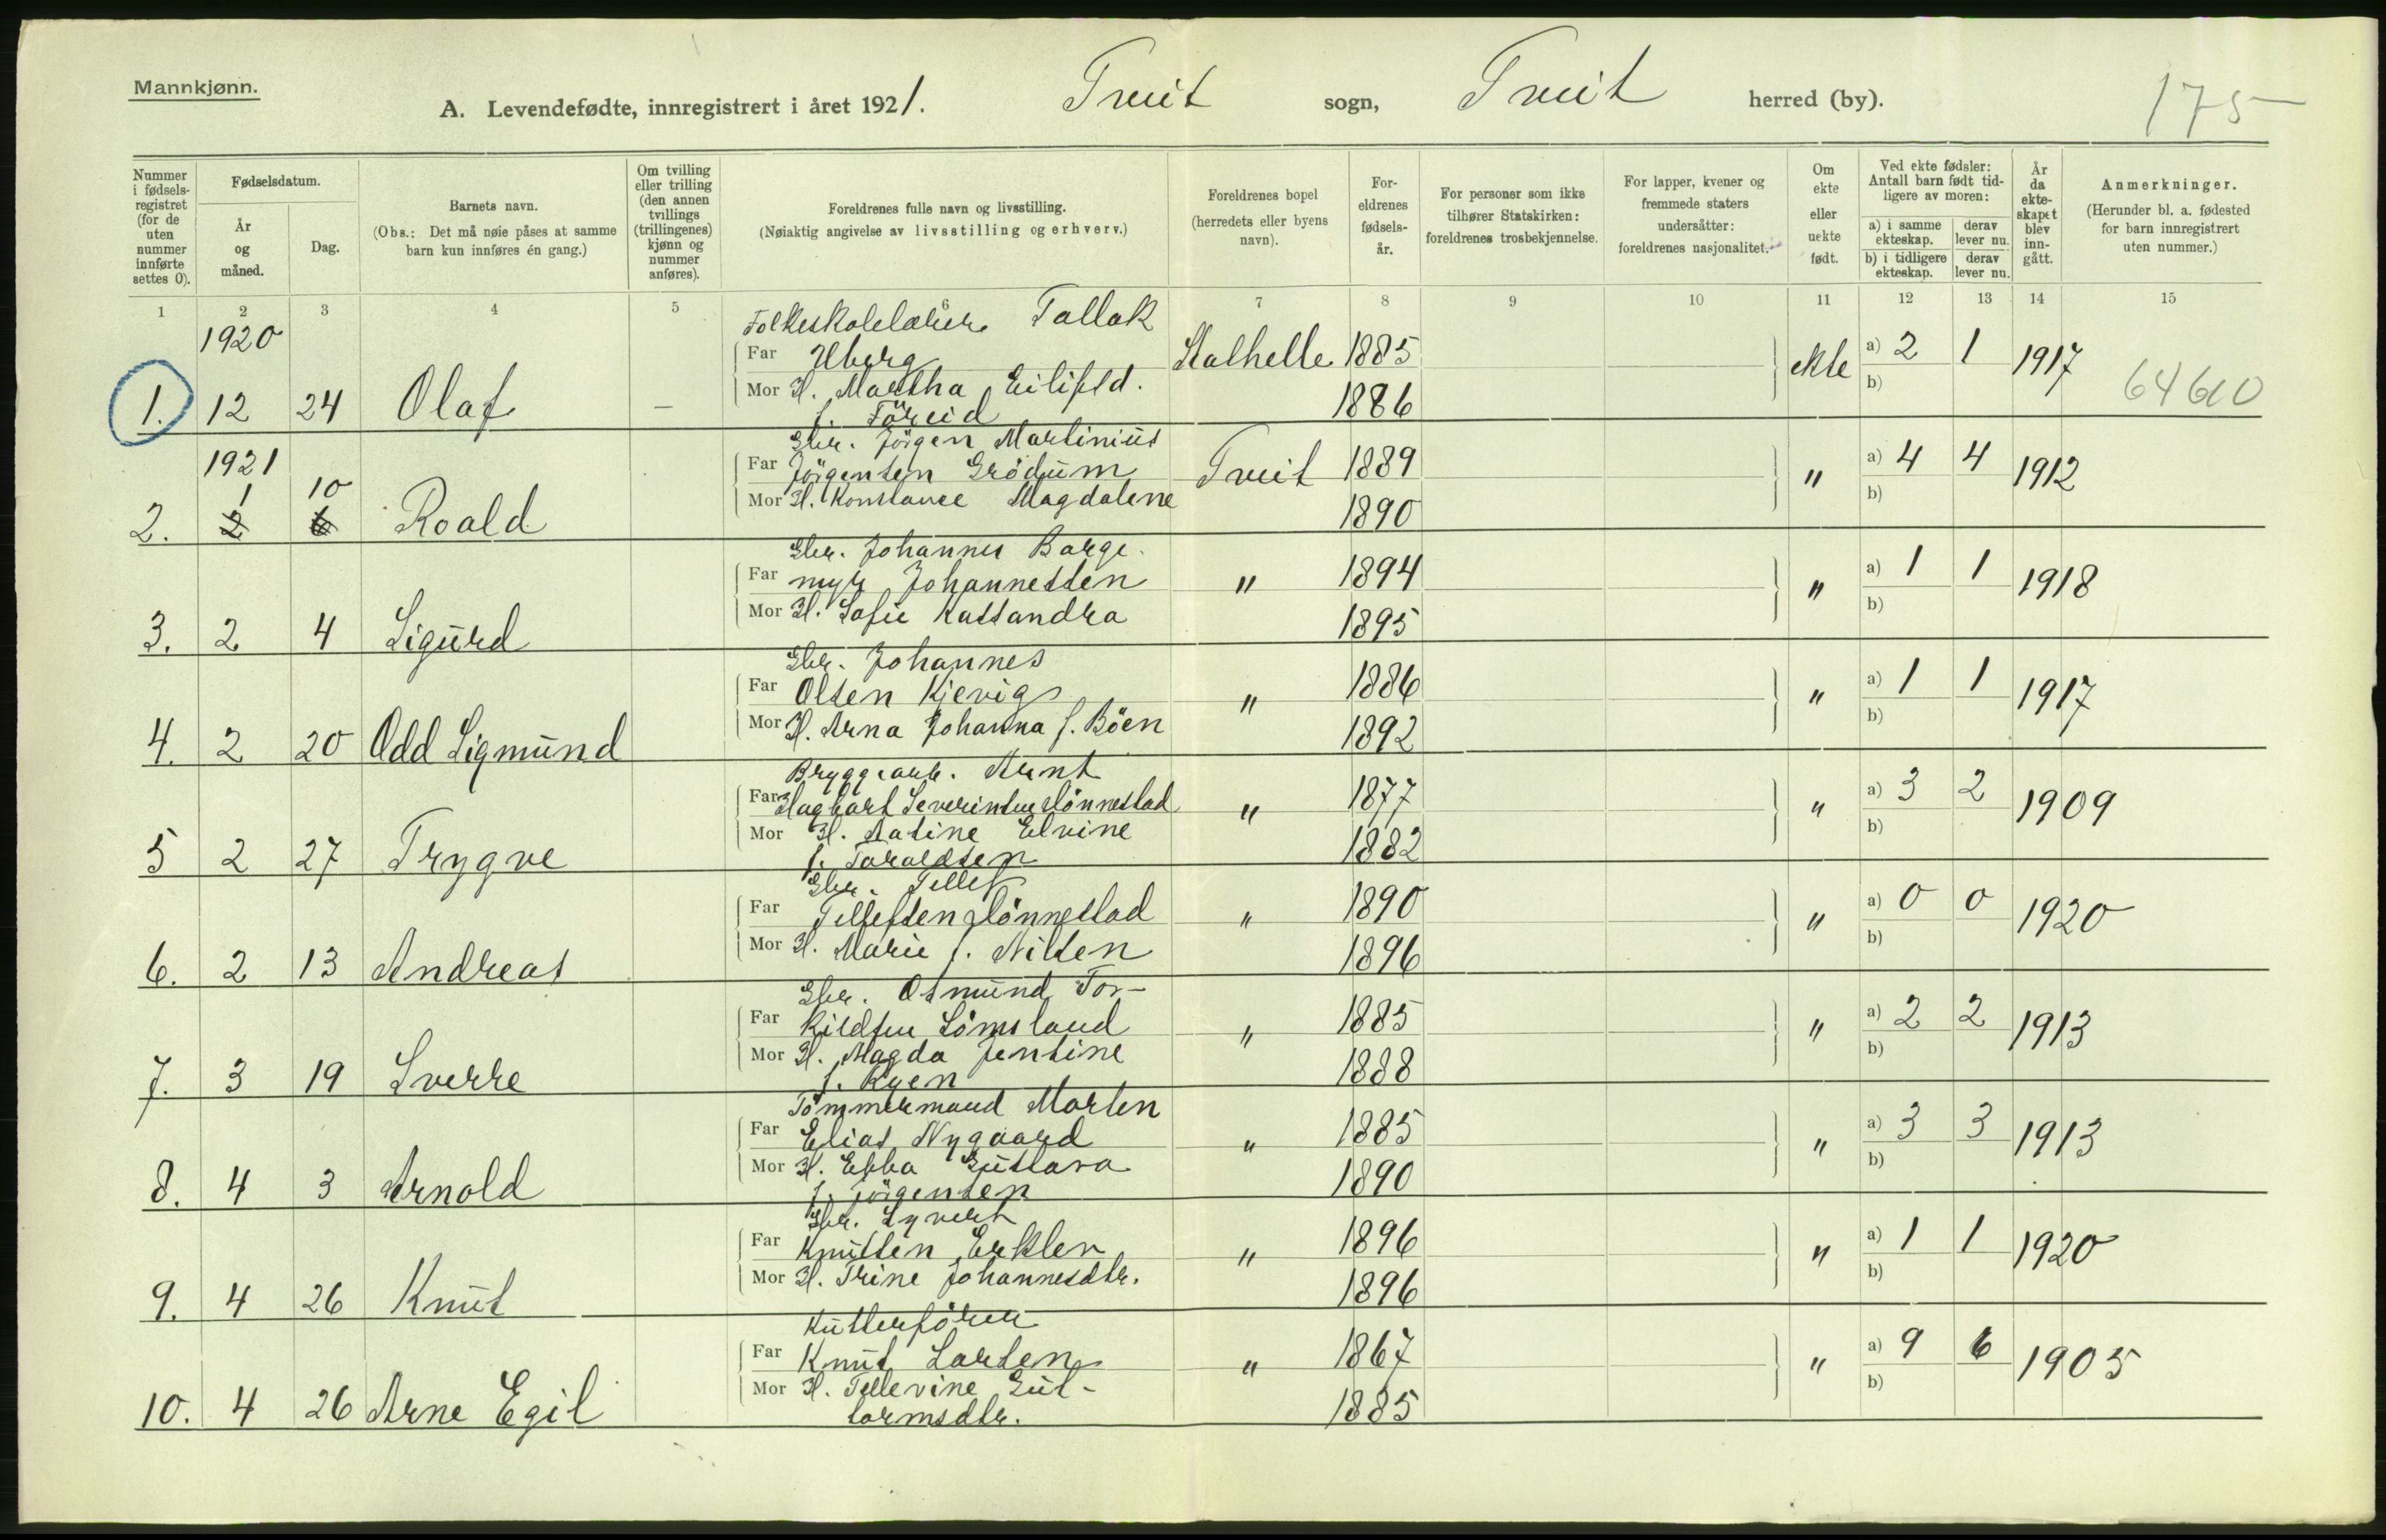 Mannkjønn.
A. Levendefødte, innregistrert i året 1921. Tveit sogn, Tveit herred (by). 175
Nummer i fødsels-registret (for de uten nummer innførte settes 0).
Fødselsdatum.
År og måned.
Dag.
Barnets navn.
(Obs.: Det må nøie påses at samme barn kun innføres én gang.)
Om tvilling eller trilling (den annen tvillings (trillingenes) kjønn og nummer anføres).
Foreldrenes fulle navn og livsstilling.
(Nøiaktig angivelse av livsstilling og erhverv.)
Foreldrenes bopel (herredets eller byens navn).
For-eldrenes fødsels-år.
For personer som ikke tilhører Statskirken: foreldrenes trosbekjennelse.
For lapper, kvener og fremmede staters undersåtter: foreldrenes nasjonalitet.
Om ekte eller uekte født.
Ved ekte fødsler: Antall barn født tid-ligere av moren:
a) i samme ekteskap.
derav lever nu.
b) i tidligere ekteskap.
derav lever nu.
År da ekte-skapet blev inn-gått.
Anmerkninger.
(Herunder bl. a. fødested for barn innregistrert uten nummer.)
1 2 3 4 5 6 7 8 9 10 11 12 13 14 15
1920
Folkeskolelærer Tallak
Far Uberg Stalhelle 1885 ekte a) 2 1 1917
Mor H. Martha Eilifsd. b) 64660
1. 12 24 Olaf — f. Föreid 1886
1921
Gbr. Jörgen Martinius
Far Jörgensen Grödum Tveit 1889 " a) 4 4 1912
1 10
Mor H. Konstance Magdalene b)
2. 2 6 Roald 1890
Gbr. Johannes Barge-
Far myr Johannessen " 1894 " a) 1 1 1918
Mor H. Sofie Kassandra b)
3. 2 4 Sigurd 1895
Gbr. Johannes
Far Olsen Kjevig " 1886 " a) 1 1 1917
Mor H. Arna Johanna f. Böen b)
4. 2 20 Odd Sigmund 1892
Bryggearb. Arnt
Far Hagbart Severinsen Rönnestad " 1877 " a) 3 2 1909
Mor H. Elvine b)
5 2 27 Trygve f. Taraldsen 1882
Gbr. Tellef
Far Tellefsen Rönnestad " 1890 " a) 0 0 1920
Mor H. Marie f. Nilsen b)
6. 2 13 Andreas 1896
Gbr. Osmund Tor-
Far kildsen Sömsland " 1885 " a) 2 2 1913
Mor H. Magda Jensine b)
7. 3 19 Sverre f. Ryen 1888
Tömmermand Morten
Far Elias Nygaard " 1885 " a) 3 3 1913
Mor H. Ebba Gustava b)
8. 4 3 Arnold f. Jörgensen 1890
Gbr. Syvert
Far Knutsen Erklev " 1896 " a) 1 1 1920
Mor H. Trine Johannesdtr. b)
9. 4 26 Knut 1896
Kutterförer
Far Knut Larsen " 1867 " a) 9 6 1905
Mor H. Tellevine Gut- b)
10. 4 26 Arne Egil tormsdtr. 1885